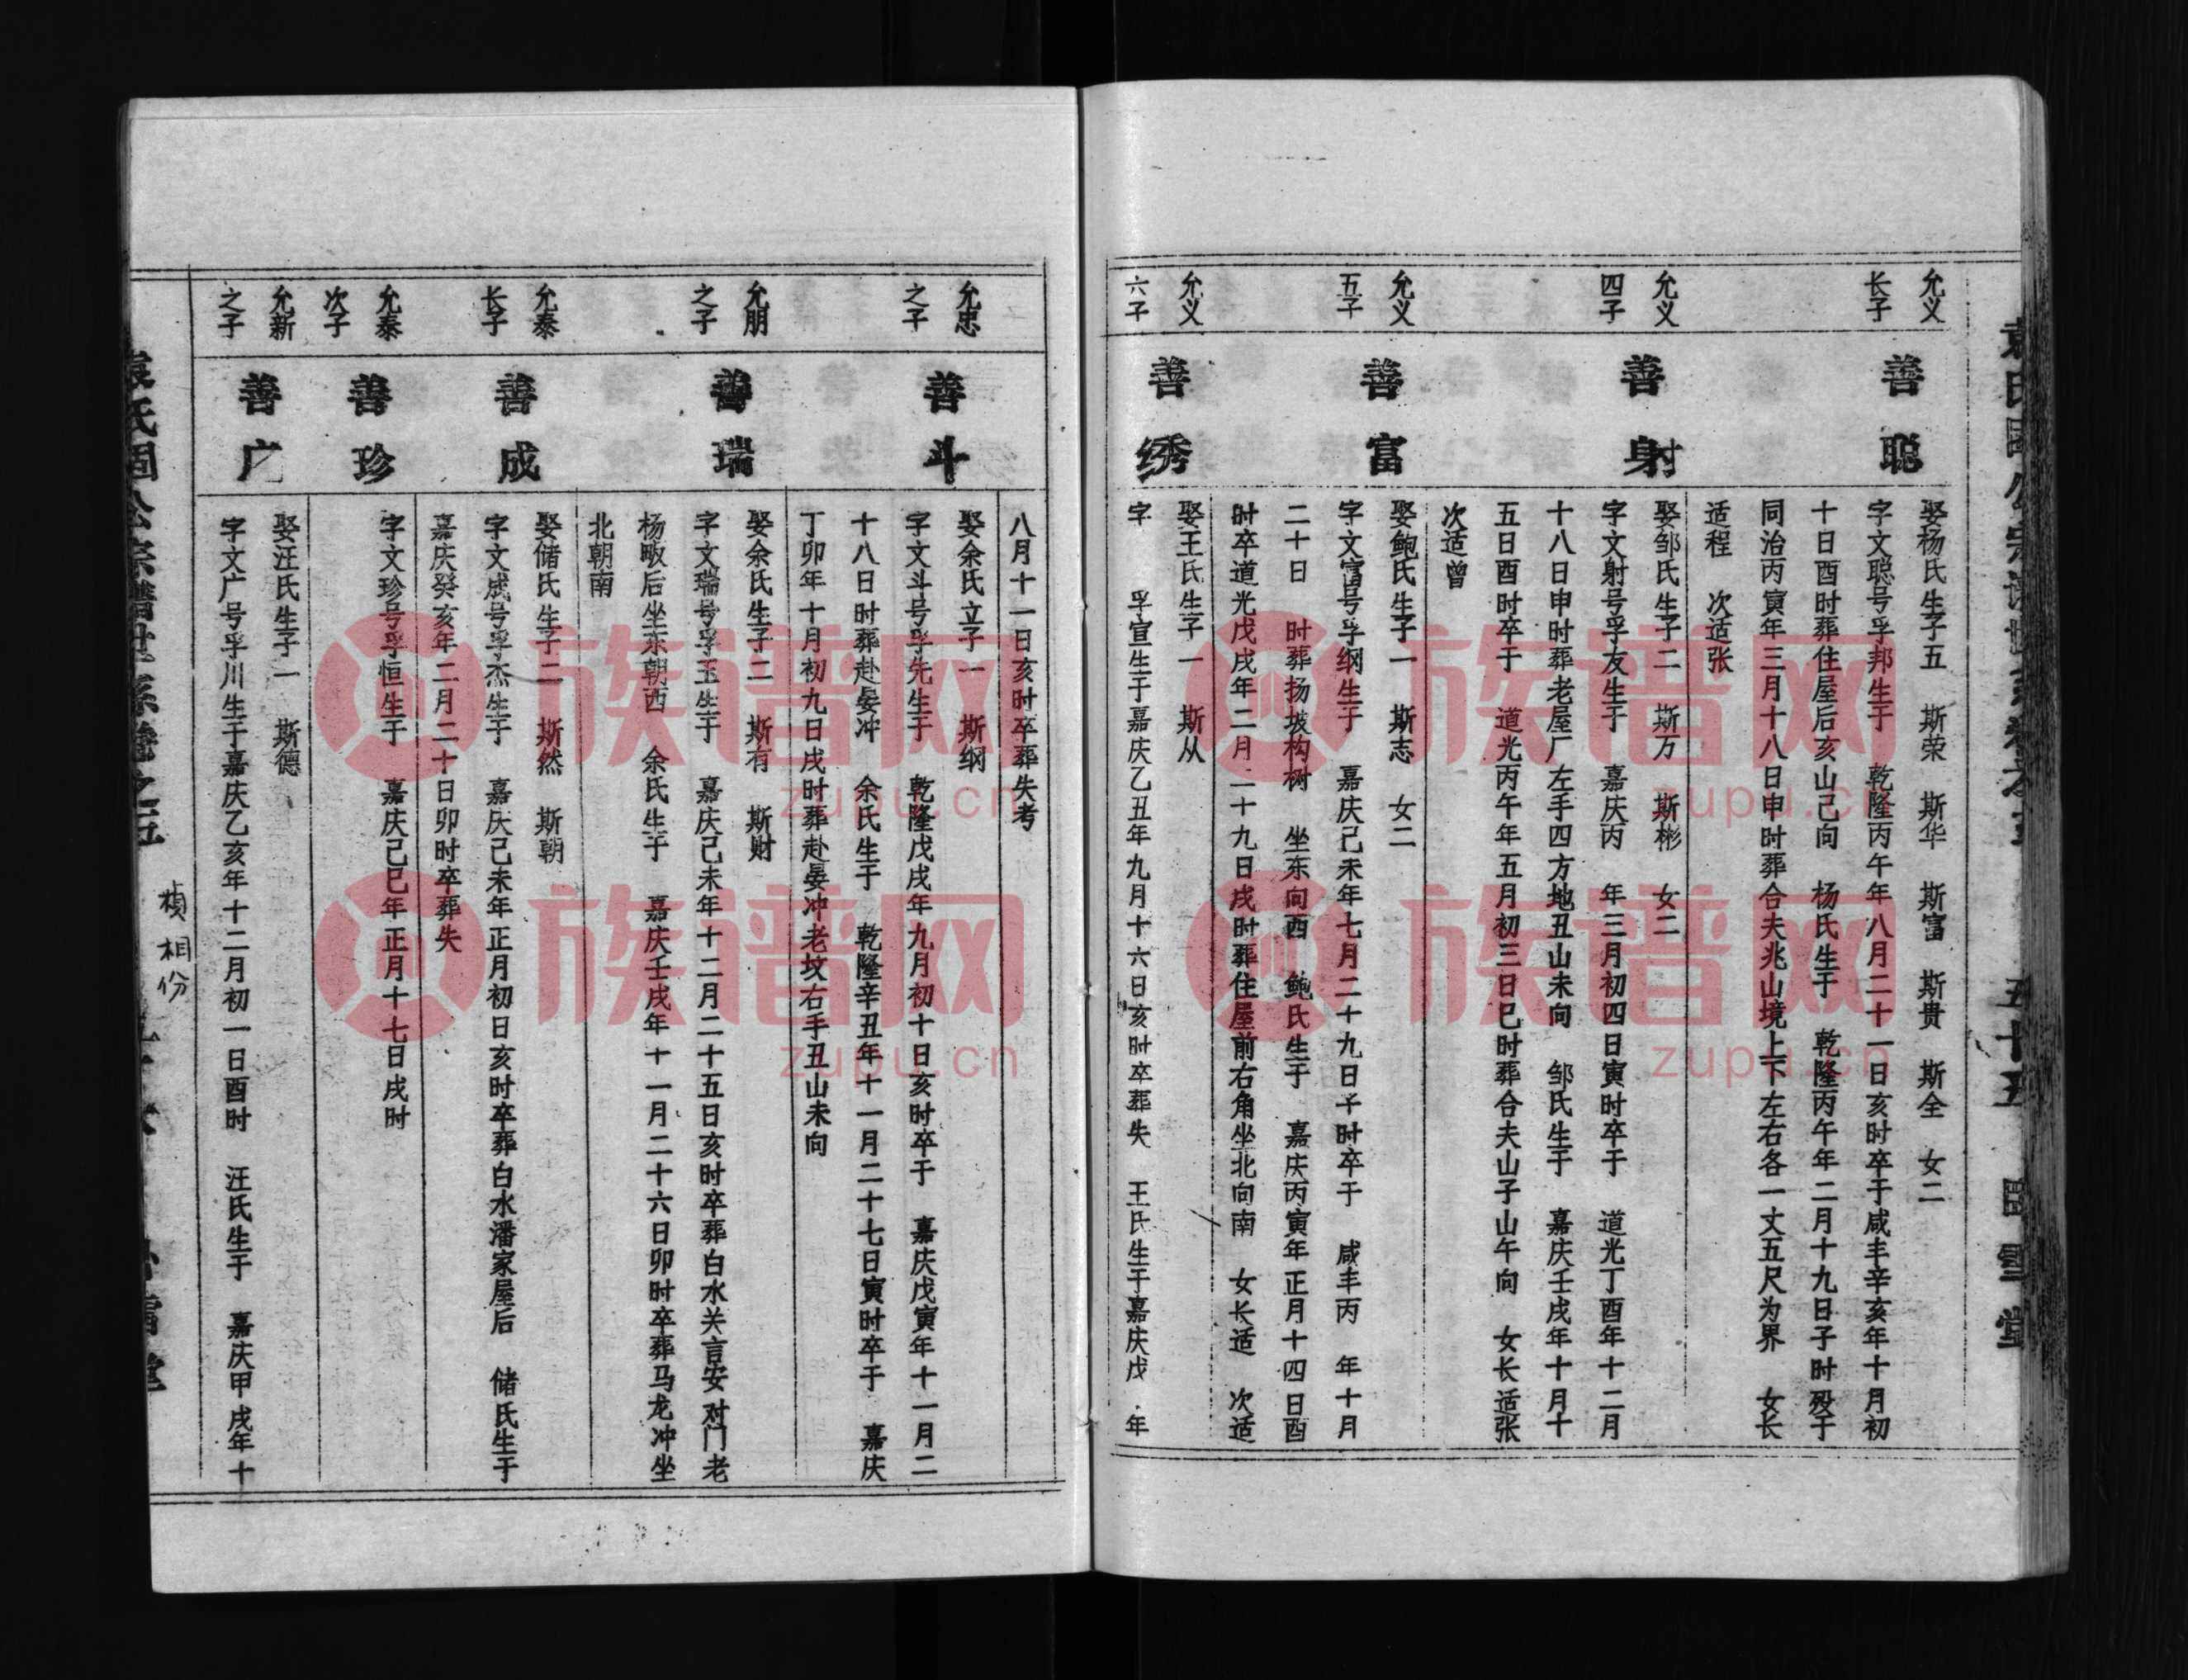 五十五
允义
长子
善聪
娶杨氏生子五 斯荣 斯华 斯富 斯贵 斯全 女二
字文聪号孚邦生于 乾隆丙午年八月二十一日亥时卒于咸丰辛亥年十月初
十日酉时葬住屋后亥山己向 杨氏生于 乾隆丙午年二月十九日子时殁于
同治丙寅年三月十八日申时葬合夫兆山境上下左右各一丈五尺为界 女长
适程 次适张
允义
四子
善射
娶邹氏生子二 斯万 斯彬 女二
字文射号孚友生于 嘉庆丙 年三月初四日寅时卒于 道光丁酉年十二月
十八日申时葬老屋厂左手四方地丑山未向 邹氏生于 嘉庆壬戌年十月十
五日酉时卒于 道光丙午年五月初三日巳时葬合夫山子山午向 女长适张
次适曾
允义
五子
善富
娶鲍氏生子一 斯志 女二
字文富号孚纲生于 嘉庆己未年七月二十九日子时卒于 咸丰丙 年十月
二十日 时葬扬坡构树 坐东向西 鲍氏生于 嘉庆丙寅年正月十四日酉
时卒道光戊戌年二月二十九日戌时葬住屋前右角坐北向南 女长适 次适
允义
六子
善绣
娶王氏生子一 斯从
字 孚宣生于嘉庆乙丑年九月十六日亥时卒葬失 王氏生于嘉庆戊 年
八月十一日亥时卒葬失考
允忠
之子
善斗
娶余氏立子一 斯纲
字文斗号孚先生于 乾隆戊戌年九月初十日亥时卒于 嘉庆戊寅年十一月二
十八日时葬赴晏冲 余氏生于 乾隆辛丑年十一月二十七日寅时卒于 嘉庆
丁卯年十月初九日戌时葬赴晏冲老坟右手丑山未向
允朋
之子
善瑞
娶余氏生子二 斯有 斯财
字文瑞号孚玉生于 嘉庆己未年十二月二十五日亥时卒葬白水关言安对门老
杨畈后坐东朝西 余氏生于 嘉庆壬戌年十一月二十六日卯时卒葬马龙冲坐
北朝南
允泰
长子
善成
娶储氏生子二 斯然 斯朝
字文成号孚杰生于 嘉庆己未年正月初日亥时卒葬白水潘家屋后 储氏生于
嘉庆癸亥年二月二十日卯时卒葬失
允泰
次子
善珍
字文珍号孚恒生于 嘉庆己巳年正月十七日戌时
允新
之子
善广
娶汪氏生子一 斯德
字文广号孚川生于嘉庆乙亥年十二月初一日酉时 汪氏生于 嘉庆甲戌年十
桢相份
族谱网
zupu.cn
族谱网
zupu.cn
族谱网
zupu.cn
族谱网
zupu.cn